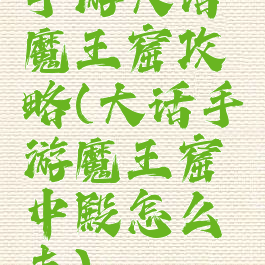 手游大话
魔王窟攻
略(大话手
游魔王窟
中殿怎么
走)